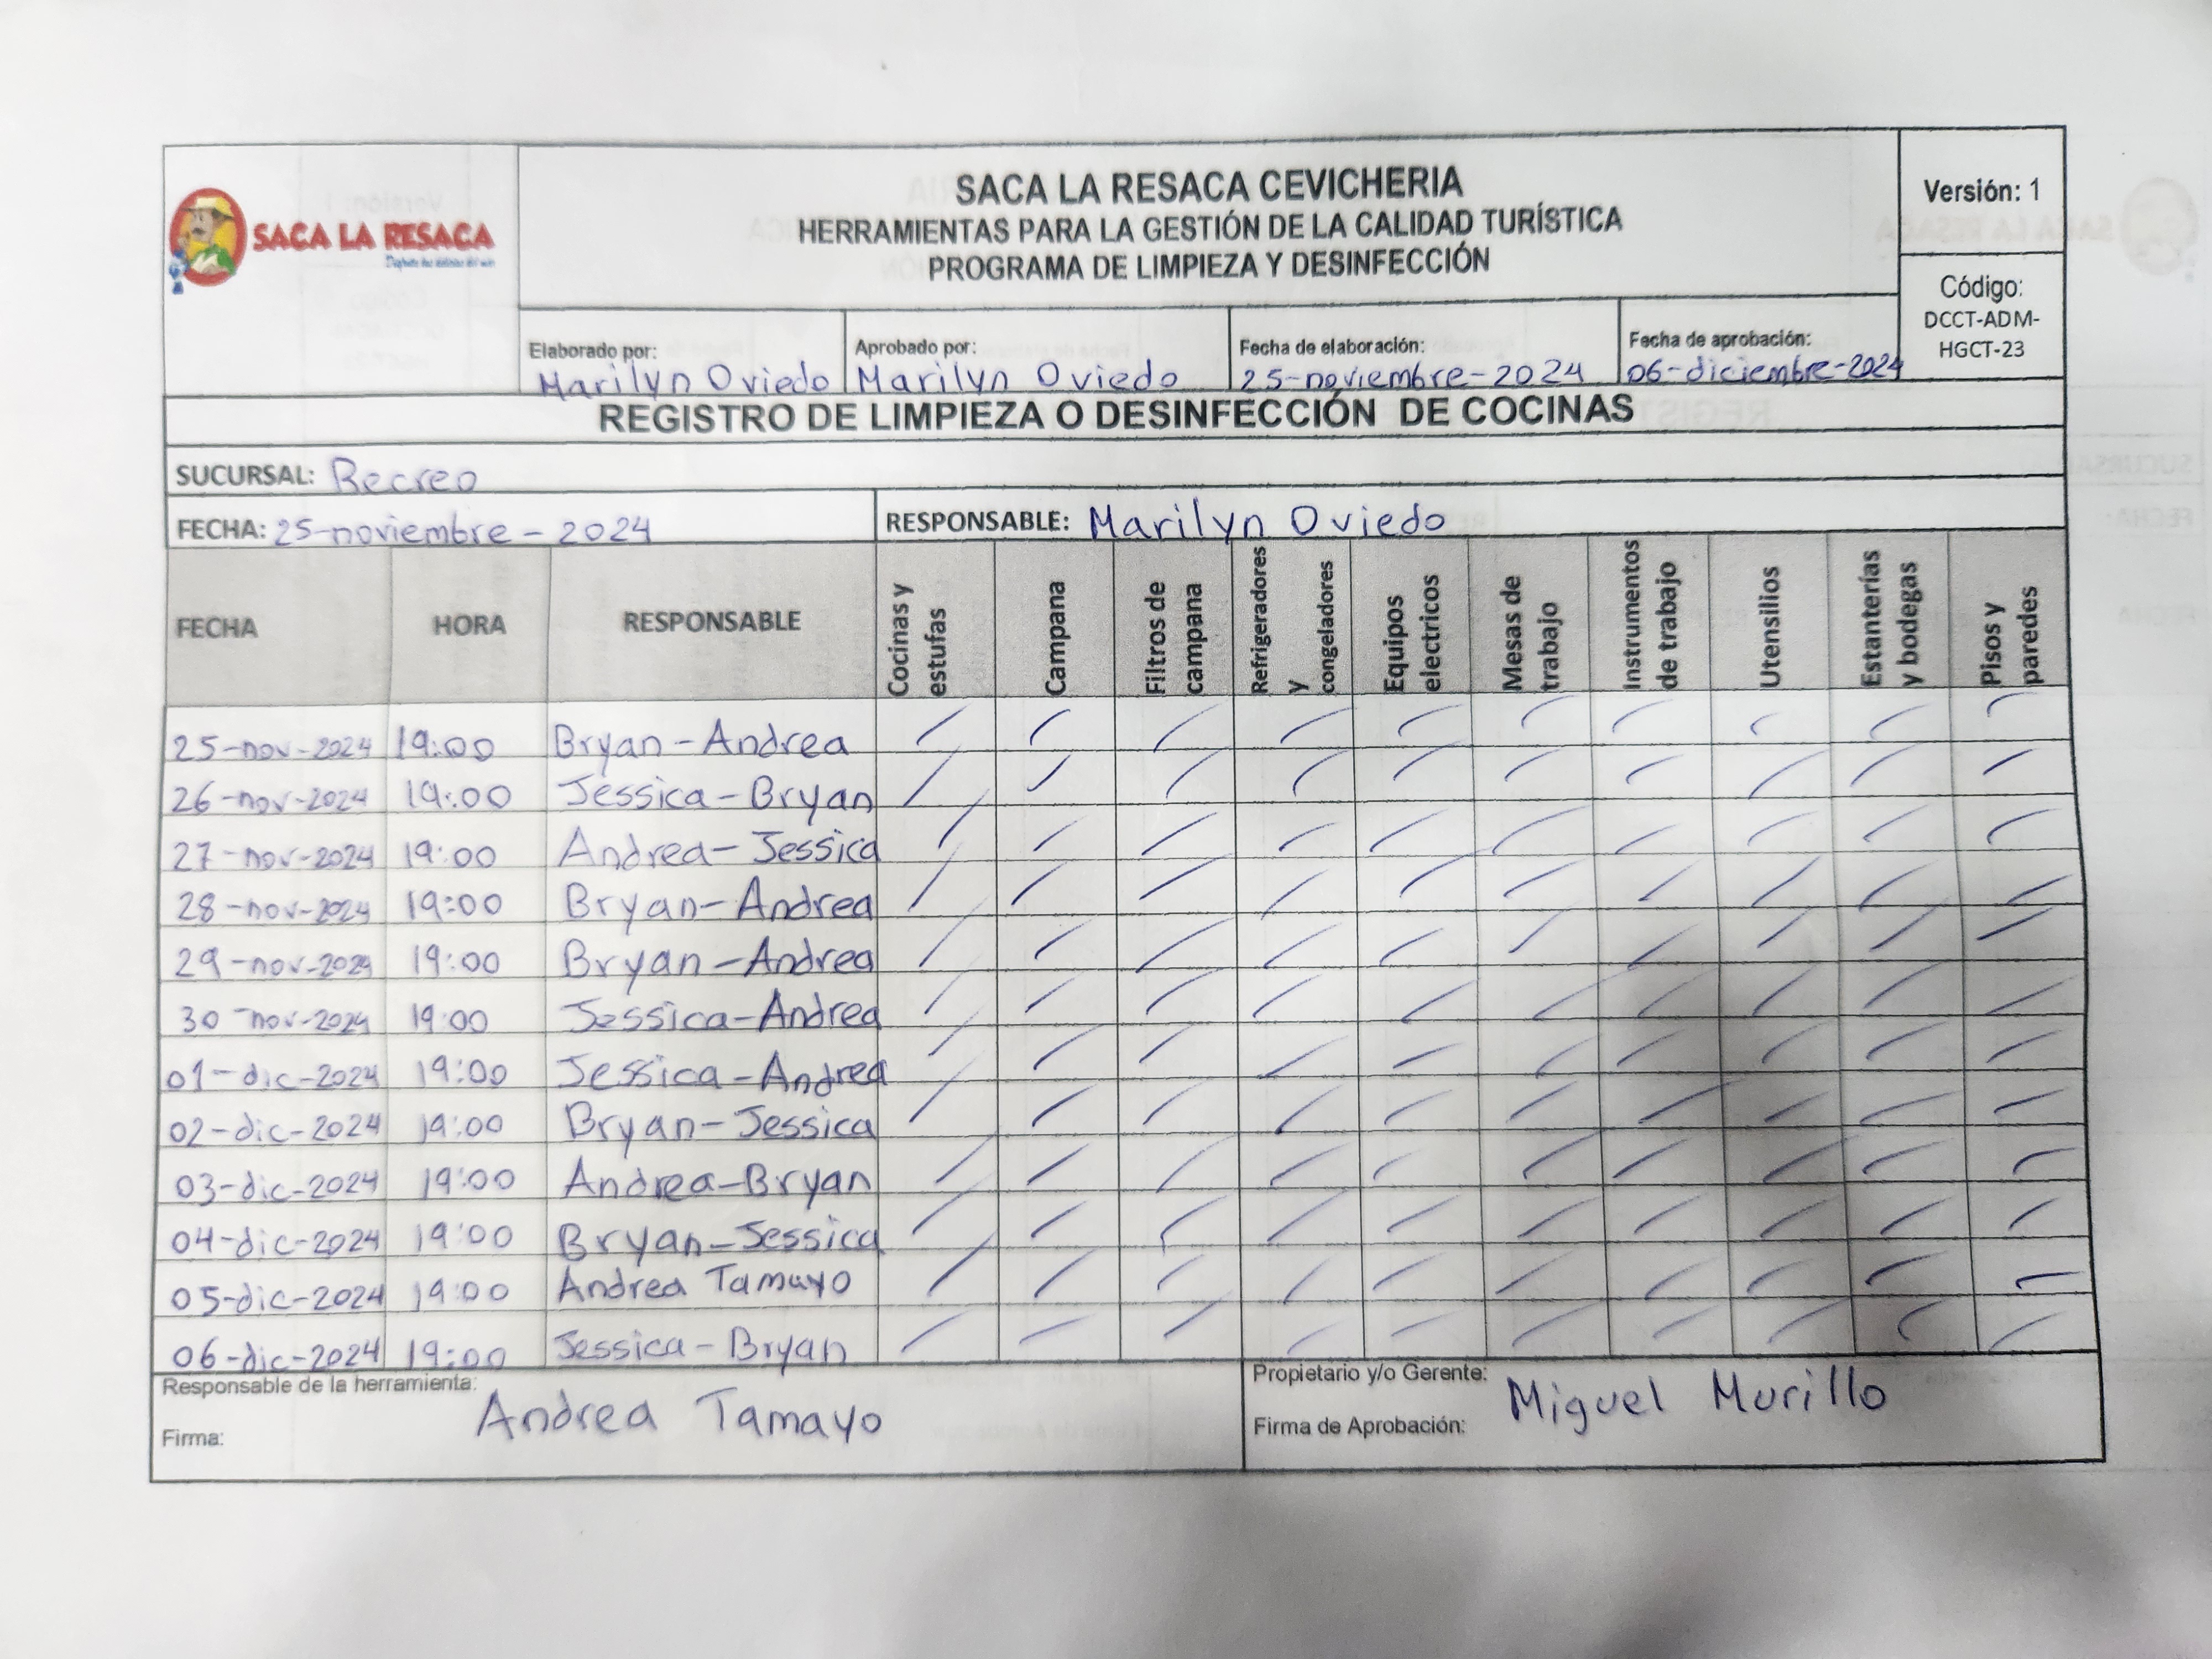 SACA LA RESACA CEVICHERIA
HERRAMIENTAS PARA LA GESTIÓN DE LA CALIDAD TURÍSTICA
PROGRAMA DE LIMPIEZA Y DESINFECCIÓN
SACA LA RESACA
Versión: 1
Código:
DCCT-ADM-
HGCT-23
Elaborado por: Aprobado por: Fecha de elaboración: Fecha de aprobación:
Marilyn Oviedo Marilyn Oviedo 25-noviembre-2024 06-diciembre-2024
REGISTRO DE LIMPIEZA O DESINFECCIÓN DE COCINAS
SUCURSAL: Recreo
FECHA: 25-noviembre-2024 RESPONSABLE: Marilyn Oviedo
FECHA HORA RESPONSABLE
Cocinas y
estufas
Campana
Filtros de
campana
Refrigeradores
y
congeladores
Equipos
electricos
Mesas de
trabajo
Instrumentos
de trabajo
Utensilios
Estanterías
y bodegas
Pisos y
paredes
25-nov-2024 19:00 Bryan-Andrea
26-nov-2024 19:00 Jessica-Bryan
27-nov-2024 19:00 Andrea-Jessica
28-nov-2024 19:00 Bryan-Andrea
29-nov-2024 19:00 Bryan-Andrea
30-nov-2024 19:00 Jessica-Andrea
01-dic-2024 19:00 Jessica-Andrea
02-dic-2024 19:00 Bryan-Jessica
03-dic-2024 19:00 Andrea-Bryan
04-dic-2024 19:00 Bryan-Jessica
05-dic-2024 19:00 Andrea Tamayo
06-dic-2024 19:00 Jessica-Bryan
Responsable de la herramienta:
Firma: Andrea Tamayo
Propietario y/o Gerente: Miguel Murillo
Firma de Aprobación: